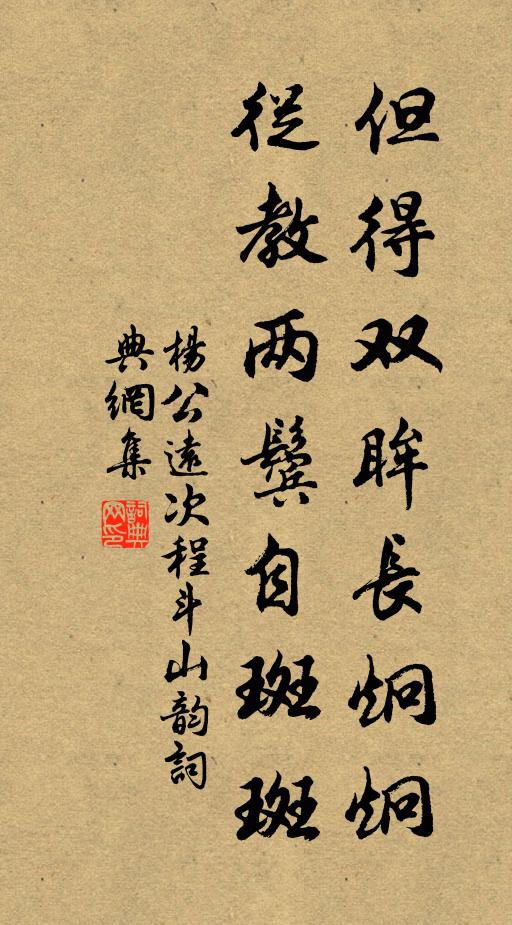 但得双眸长炯炯
從教两鬓自斑斑
楊公遠次程斗山韵詞
典網集
詞典
网印